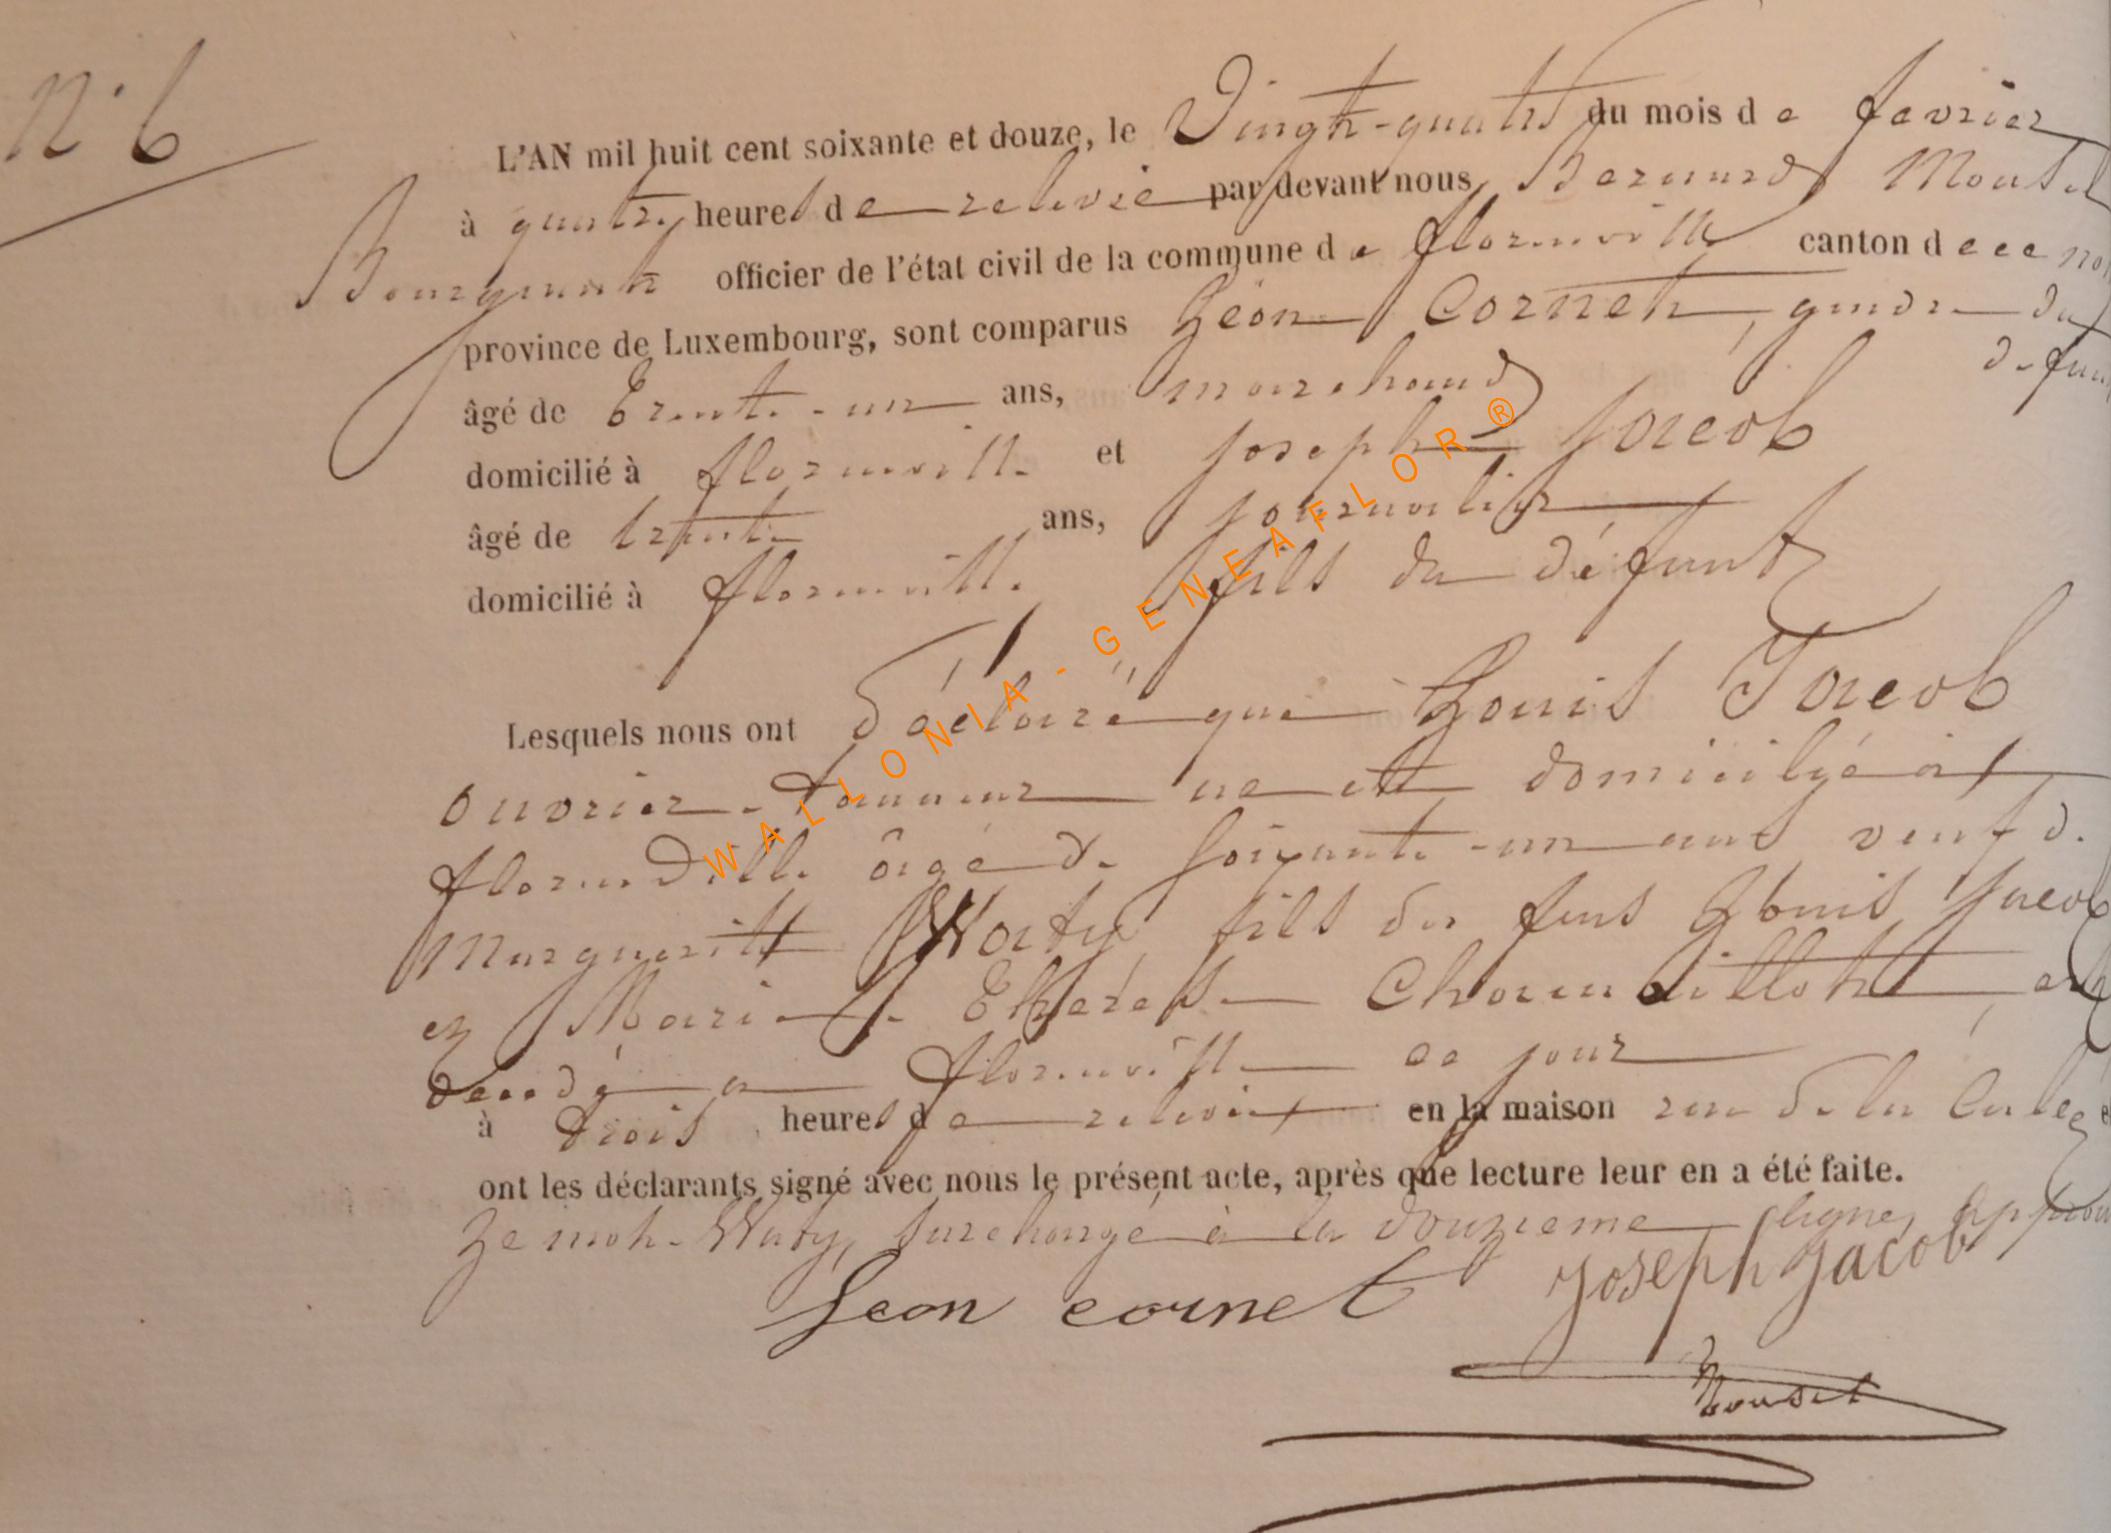 N° 6
L'AN mil huit cent soixante et douze, le Vingt-quatre du mois de fevrier
à quatre heures de relevée par devant nous Bernard Mousel
Bourgmestre officier de l'état civil de la commune de florenville canton de ce no
province de Luxembourg, sont comparus Léon Cornet, gendre du
defun
âgé de trente-un ans, marchand
domicilié à florenville et joseph jacob
âgé de trente ans, journalier
domicilié à florenville fils du défunt
Lesquels nous ont déclaré que Louis Jacob
ouvrier-tanneur né et domicilié à
florenville âgé de soixante-un ans veuf de
Marguerite Waty, fils des feus Louis Jacob
et Marie-Thérèse est
décédé a florenville ce jour
à trois heures de relevée en la maison rue de la
ont les déclarants signé avec nous le présent acte, après que lecture leur en a été faite.
Le mot-Waty, surchargé à la douzième ligne, approu
Leon cornet Joseph Jacob
Mousel
WALLONIA-GENEAFLOR®